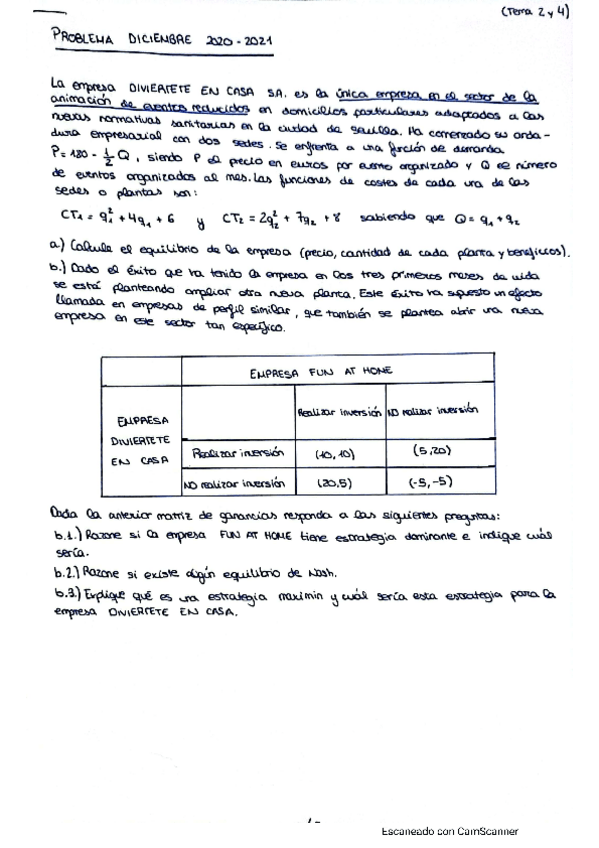 (Tema 2 y 4)
PROBLEMA DICIEMBRE 2020-2021
La empresa DIVIERTETE EN CASA SA. es la única empresa en el sector de la
animación de eventos reducidos en domicilios particulares adaptados a las
nuevas normativas sanitarias en la ciudad de Sevilla. Ha comenzado su anda-
dura empresarial con dos sedes. Se enfrenta a una función de demanda
P= 180 - 1/2 Q, siendo P el precio en euros por evento organizado y Q el número
de eventos organizados al mes. Las funciones de costes de cada una de las
sedes o plantas son:
CT₁ = q₁² + 4q₁ + 6 y CT₂ = 2q₂² + 7q₂ + 8 sabiendo que Q = q₁ + q₂
a) Calcule el equilibrio de la empresa (precio, cantidad de cada planta y beneficios).
b.) Dado el éxito que ha tenido la empresa en los tres primeros meses de vida
se está planteando ampliar otra nueva planta. Este éxito ha supuesto un efecto
llamada en empresas de perfil similar, que también se plantea abrir una nueva
empresa en este sector tan específico.
EMPRESA FUN AT HOME
Realizar inversión NO realizar inversión
EMPRESA
DIVIERTETE
EN CASA
Realizar inversión (10, 10) (5, 20)
NO realizar inversión (20, 5) (-5, -5)
Dada la anterior matriz de ganancias responda a las siguientes preguntas:
b.1.) Razone si la empresa FUN AT HOME tiene estrategia dominante e indique cuál
sería.
b.2.) Razone si existe algún equilibrio de Nash.
b.3.) Explique qué es una estrategia maximin y cuál sería esta estrategia para la
empresa DIVIERTETE EN CASA.
Escaneado con CamScanner